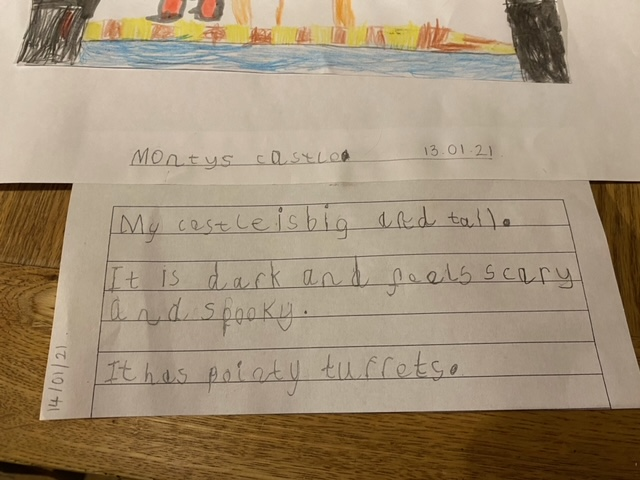 Montys castle
13.01.21
My castle is big and tall.
It is dark and feels scary
and spooky.
It has pointy turrets.
14/01/21